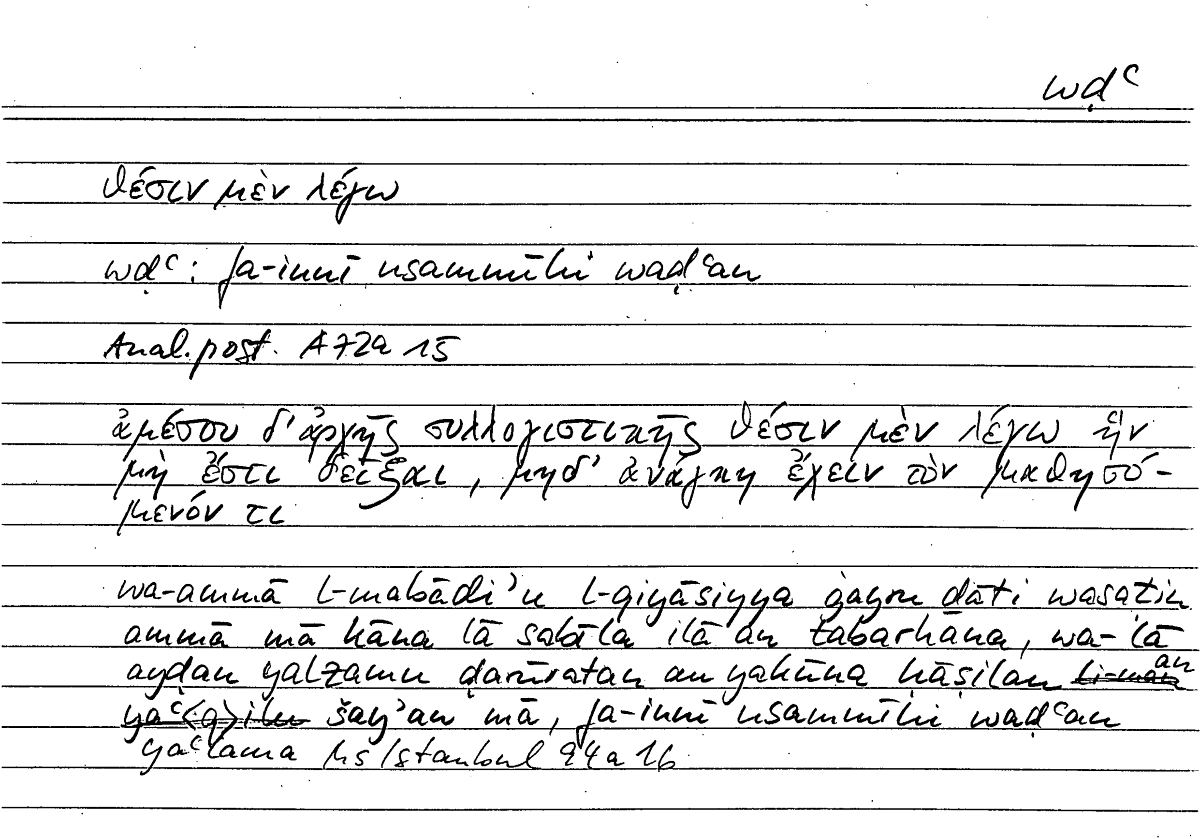 wḍʿ
θέσιν μὲν λέγω
wḍʿ: fa-innī usammīhi waḍʿan
Anal. post. A72a 15
ἀμέσου δ' ἀρχῆς συλλογιστικῆς θέσιν μὲν λέγω ἣν
μὴ ἔστι δεῖξαι, μηδ' ἀνάγκη ἔχειν τὸν μαθησό-
μενόν τι
wa-ammā l-mabādiʾu l-qiyāsiyya ġayru ḏāti wasaṭin
ammā mā kāna lā sabīla ilā an tabarhāna, wa-lā
ayḍan yalzamu ḍarūratan an yakūna ḥāṣilan li-man an
yaʿ<q>ilu šayʾan mā, fa-innī usammīhi waḍʿan
yaʿlama Ms Istanbul 94a 16